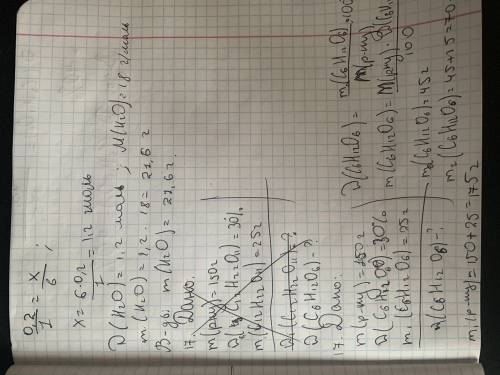 0,2/1 = x/6 ;
x = 6·0,2/1 = 1,2 моль
ν(H2O) = 1,2 моль ; M(H2O) = 18 г/моль
m(H2O) = 1,2 · 18 = 21,6 г
В-дь: m(H2O) = 21,6 г.
17. Дано:
m(р-ну) = 150 г
(C12H22O11) = 30%
m(C12H22O11) = 25 г
(C6H12O6) = ?
17. Дано:
m(р-ну) = 150 г
(C6H12O6) = 30%
m1(C6H12O6) = 25 г
(C6H12O6) = ?
(C6H12O6) = m(C6H12O6)·100 / m(р-ну)
m(C6H12O6) = m(р-ну)· (C6H12O6) / 100
m2(C6H12O6) = 45 г
m2(C6H12O6) = 45+25 = 70
m1(р-ну) = 150+25 = 175 г